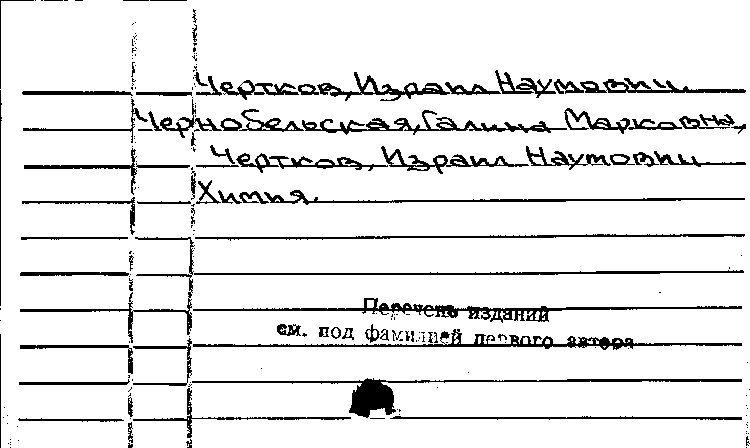 Чертков, Израил Наумович.
Чернобельская, Галина Марковна,
Чертков, Израил Наумович
Химия.
Перечень изданий
см. под фамилией первого автора